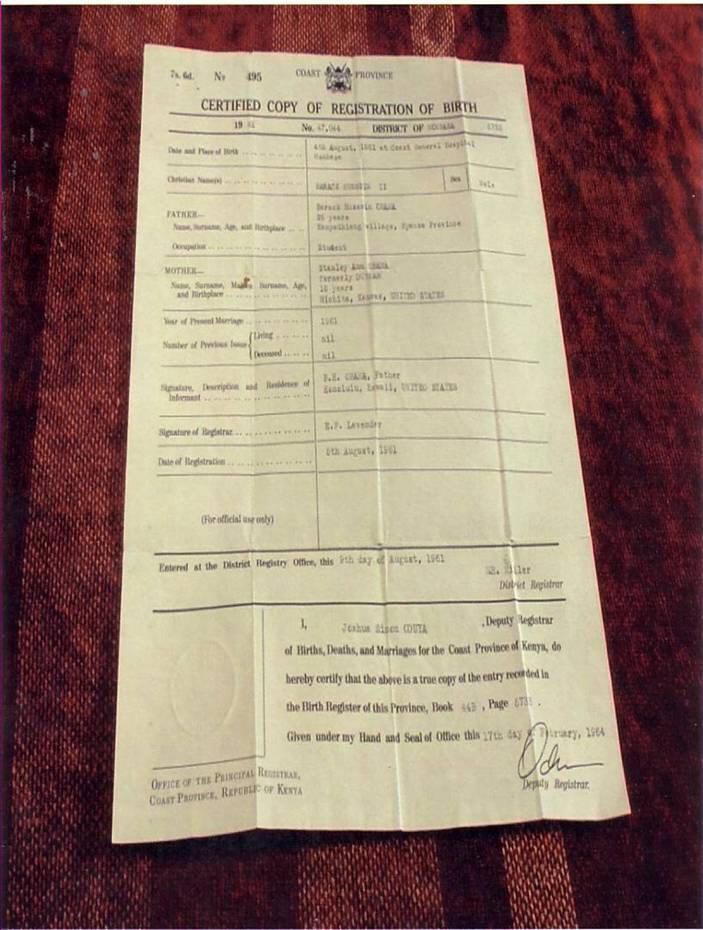 7s. 6d. No 495 COAST PROVINCE
CERTIFIED COPY OF REGISTRATION OF BIRTH
19 61 No. 47,044 DISTRICT OF MOMBASA 5733
Date and Place of Birth 4th August, 1961 at Coast General Hospital
Mombasa
Christian Name(s) BARACK HUSSEIN II Sex Male
FATHER—
Name, Surname, Age, and Birthplace
Barack Hussein OBAMA
years
village, Province
Occupation Student
MOTHER—
Name, Surname, Maiden Surname, Age,
and Birthplace
Stanley Ann OBAMA
formerly DUNHAM
18 years
Wichita, Kansas, UNITED STATES
Year of Present Marriage 1961
Number of Previous Issue Living nil
Deceased nil
Signature, Description and Residence of
Informant
B.H. OBAMA, Father
Honolulu, Hawaii, UNITED STATES
Signature of Registrar E.F. Lavender
Date of Registration 5th August, 1961
(For official use only)
Entered at the District Registry Office, this 9th day of August, 1961
Miller
District Registrar
I, Joshua Simon ODUYA , Deputy Registrar
of Births, Deaths, and Marriages for the Coast Province of Kenya, do
hereby certify that the above is a true copy of the entry recorded in
the Birth Register of this Province, Book 44B , Page 5733 .
Given under my Hand and Seal of Office this 17th day of February, 1964
OFFICE OF THE PRINCIPAL REGISTRAR,
COAST PROVINCE, REPUBLIC OF KENYA
Deputy Registrar.